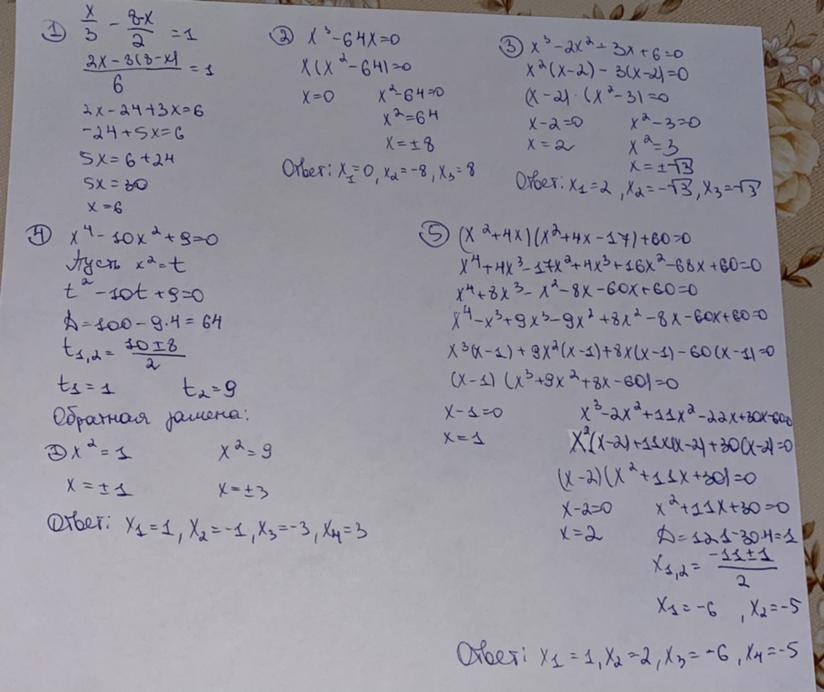 ① x/3 - 8-x/2 = 1
2x-3(8-x)/6 = 1
2x-24+3x=6
-24+5x=6
5x=6+24
5x=30
x=6
② x³-64x=0
x(x²-64)=0
x=0 x²-64=0
x²=64
x=±8
Ответ: x₁=0, x₂=-8, x₃=8
③ x³-2x²-3x+6=0
x²(x-2)-3(x-2)=0
(x-2)·(x²-3)=0
x-2=0 x²-3=0
x=2 x²=3
x=±√3
Ответ: x₁=2, x₂=-√3, x₃=√3
④ x⁴-10x²+9=0
Пусть x²=t
t²-10t+9=0
D=100-9·4=64
t₁,₂=10±8/2
t₁=1 t₂=9
Обратная замена:
① x²=1 x²=9
x=±1 x=±3
Ответ: x₁=1, x₂=-1, x₃=-3, x₄=3
⑤ (x²+4x)(x²+4x-17)+60=0
x⁴+4x³-17x²+4x³+16x²-68x+60=0
x⁴+8x³-x²-8x-60x+60=0
x⁴-x³+9x³-9x²+8x²-8x-60x+60=0
x³(x-1)+9x²(x-1)+8x(x-1)-60(x-1)=0
(x-1)(x³+9x²+8x-60)=0
x-1=0 x³-2x²+11x²-22x+30x-60=0
x=1 x²(x-2)+11x(x-2)+30(x-2)=0
(x-2)(x²+11x+30)=0
x-2=0 x²+11x+30=0
x=2 D=121-30·4=1
x₁,₂=-11±1/2
x₁=-6, x₂=-5
Ответ: x₁=1, x₂=2, x₃=-6, x₄=-5